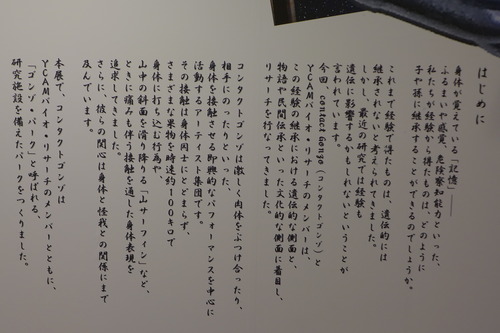 はじめに
身体が覚えている「記憶」──
ふるまいや感覚、危険察知能力といった、
私たちが経験から得たものは、どのように
子や孫に継承することができるのでしょうか。
これまで経験で得たものは、遺伝的には
継承されないと考えられてきました。
しかし、最近の研究では経験も
遺伝に影響するかもしれないということが
言われています。
今回、contact Gonzo（コンタクトゴンゾ）と
YCAMバイオ・リサーチのメンバーは、
この経験の継承における遺伝的な側面と、
物語や民間伝承といった文化的な側面に着目し、
リサーチを行なってきました。
コンタクトゴンゾは激しく肉体をぶつけ合ったり、
相手にのったりといった、
身体を接触させる即興的なパフォーマンスを中心に
活動するアーティスト集団です。
その接触は身体同士にとどまらず、
さまざまな果物を時速約100キロで
身体に打ち込む行為や、
山中の斜面を滑り降りる「山サーフィン」など、
ときに痛みも伴う接触を通した身体表現を
追求してきました。
さらに、彼らの関心は身体と怪我との関係にまで
及んでいます。
本展で、コンタクトゴンゾは
YCAMバイオ・リサーチのメンバーとともに、
「ゴンゾ・パーク」と呼ばれる、
研究施設を備えたパークをつくりました。